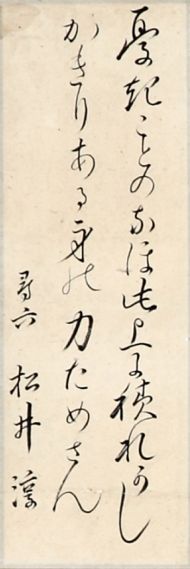 憂起ことのなほ此上に積れかし
かきりある身の力ためさん
尋六 松井 淳